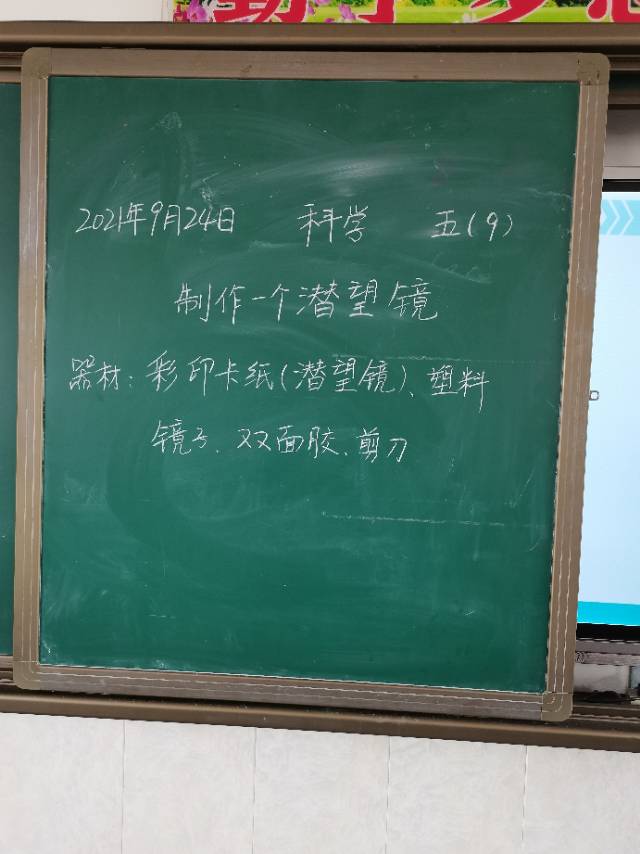 2021年9月24日 科学 五(9)
制作一个潜望镜
器材:彩印卡纸(潜望镜)、塑料
镜子、双面胶、剪刀